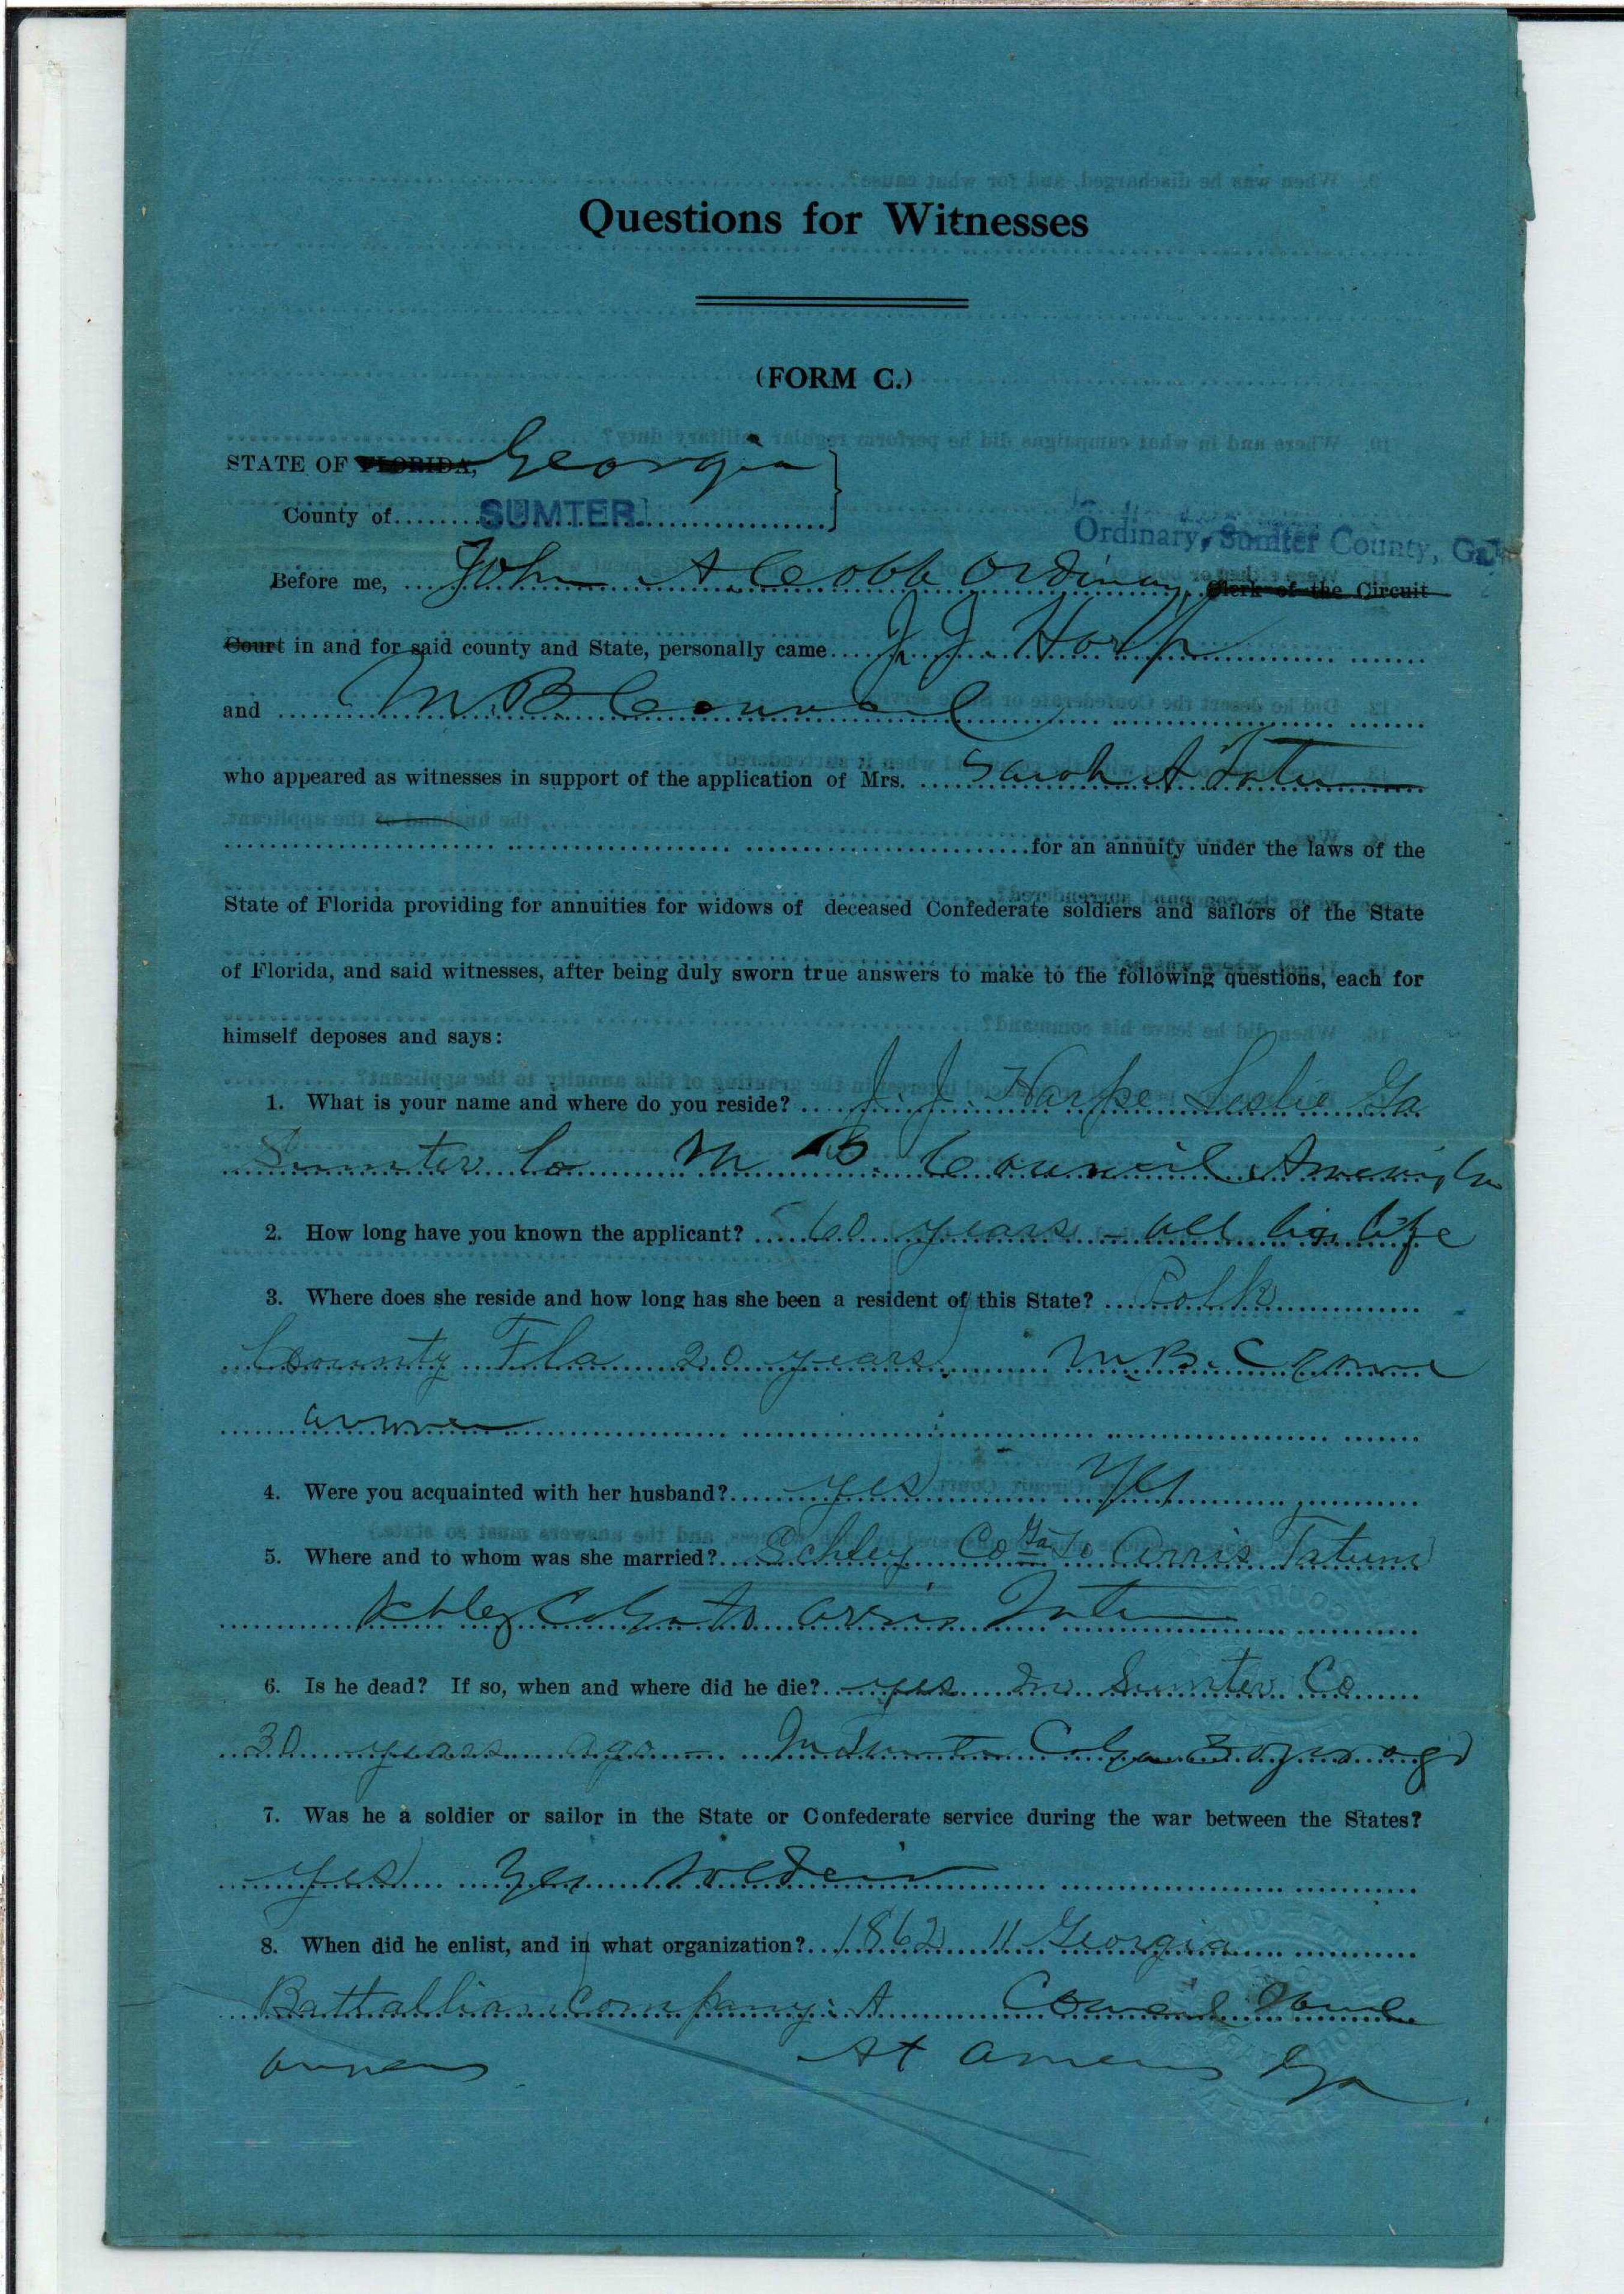 Questions for Witnesses
(FORM C.)
STATE OF FLORIDA, Georgia
County of SUMTER
Ordinary, Sumter County, Ga.
Before me, John A Cobb Ordinary Clerk of the Circuit
Court in and for said county and State, personally came J. J. Harp
and M B Council
who appeared as witnesses in support of the application of Mrs. Sarah A Tatum
for an annuity under the laws of the
State of Florida providing for annuities for widows of deceased Confederate soldiers and sailors of the State
of Florida, and said witnesses, after being duly sworn true answers to make to the following questions, each for
himself deposes and says:
1. What is your name and where do you reside? J. J. Harpe Leslie Ga
Sumter Co M B. Council Americus, Ga
2. How long have you known the applicant? 60 years - all his life
3. Where does she reside and how long has she been a resident of this State? Polk
County Fla 20 years M. B. C same
answer
4. Were you acquainted with her husband? yes Yes
5. Where and to whom was she married? Schley Co Ga to Arris Tatum
Schley Co Ga to Arris Tatum
6. Is he dead? If so, when and where did he die? yes In Sumter Co
30 years ago In Sumter Co Ga 30 years ago
7. Was he a soldier or sailor in the State or Confederate service during the war between the States?
yes Yes soldier
8. When did he enlist, and in what organization? 1862 11 Georgia
Battallion Company A Council same
answer At Americus Ga